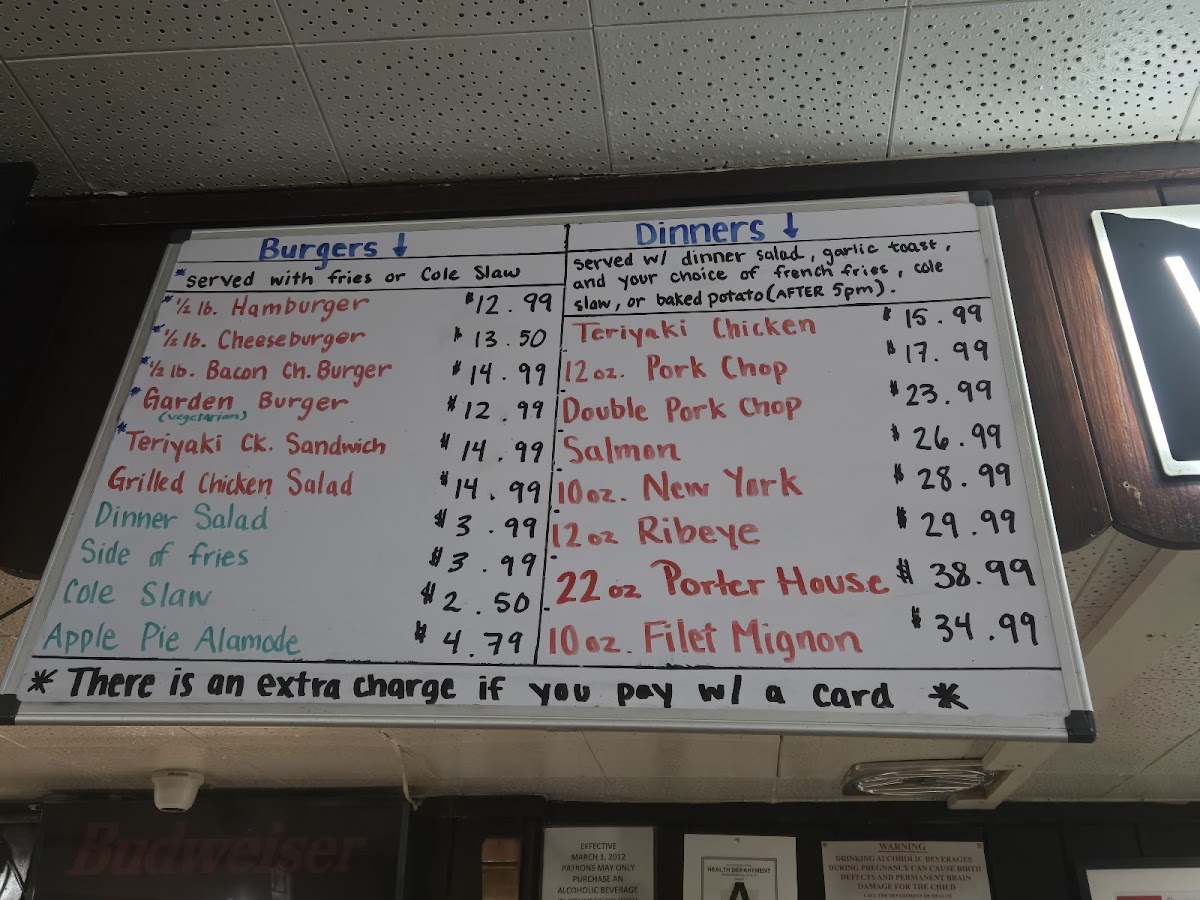 Burgers ↓
*served with fries or Cole Slaw
*½ lb. Hamburger $12.99
*½ lb. Cheeseburger $13.50
*½ lb. Bacon Ch. Burger $14.99
*Garden Burger $12.99
(vegetarian)
*Teriyaki Ck. Sandwich $14.99
Grilled Chicken Salad $14.99
Dinner Salad $3.99
Side of fries $3.99
Cole Slaw $2.50
Apple Pie Alamode $4.79
Dinners ↓
served w/ dinner salad, garlic toast,
and your choice of french fries, cole
slaw, or baked potato (AFTER 5pm).
Teriyaki Chicken $15.99
12 oz. Pork Chop $17.99
Double Pork Chop $23.99
Salmon $26.99
10 oz. New York $28.99
12 oz Ribeye $29.99
22 oz Porter House $38.99
10 oz. Filet Mignon $34.99
* There is an extra charge if you pay w/ a card *
Budweiser
EFFECTIVE
MARCH 1, 2012
PATRONS MAY ONLY
PURCHASE AN
ALCOHOLIC BEVERAGE
HEALTH DEPARTMENT
A
WARNING
DRINKING ALCOHOLIC BEVERAGES
DURING PREGNANCY CAN CAUSE BIRTH
DEFECTS AND PERMANENT BRAIN
DAMAGE FOR THE CHILD